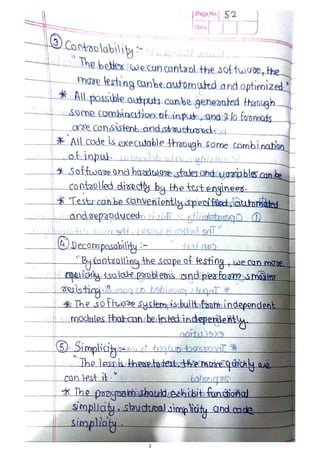 Page No. 52
Date
③ Controlability :-
"The better we can control the software, the
more testing can be automated and optimized"
* All possible outputs can be generated through
some combination of input, and I/o formats
are consistent and structured
* All code is executable through some combination
of input.
* Software and hardware states and variables can be
controlled directly by the test engineers.
* Tests can be conveniently specified, automated
and reproduced.
④ Decomposability :-
"By controlling the scope of testing, we can more
isolate problems and perform smarter
testing."
* The software system is built from independent
modules that can be tested independently.
⑤ Simplicity :-
"The less is there to test, the more quickly we
can test it."
* The program should exhibit functional
simplicity, structural simplicity and code
simplicity.
2